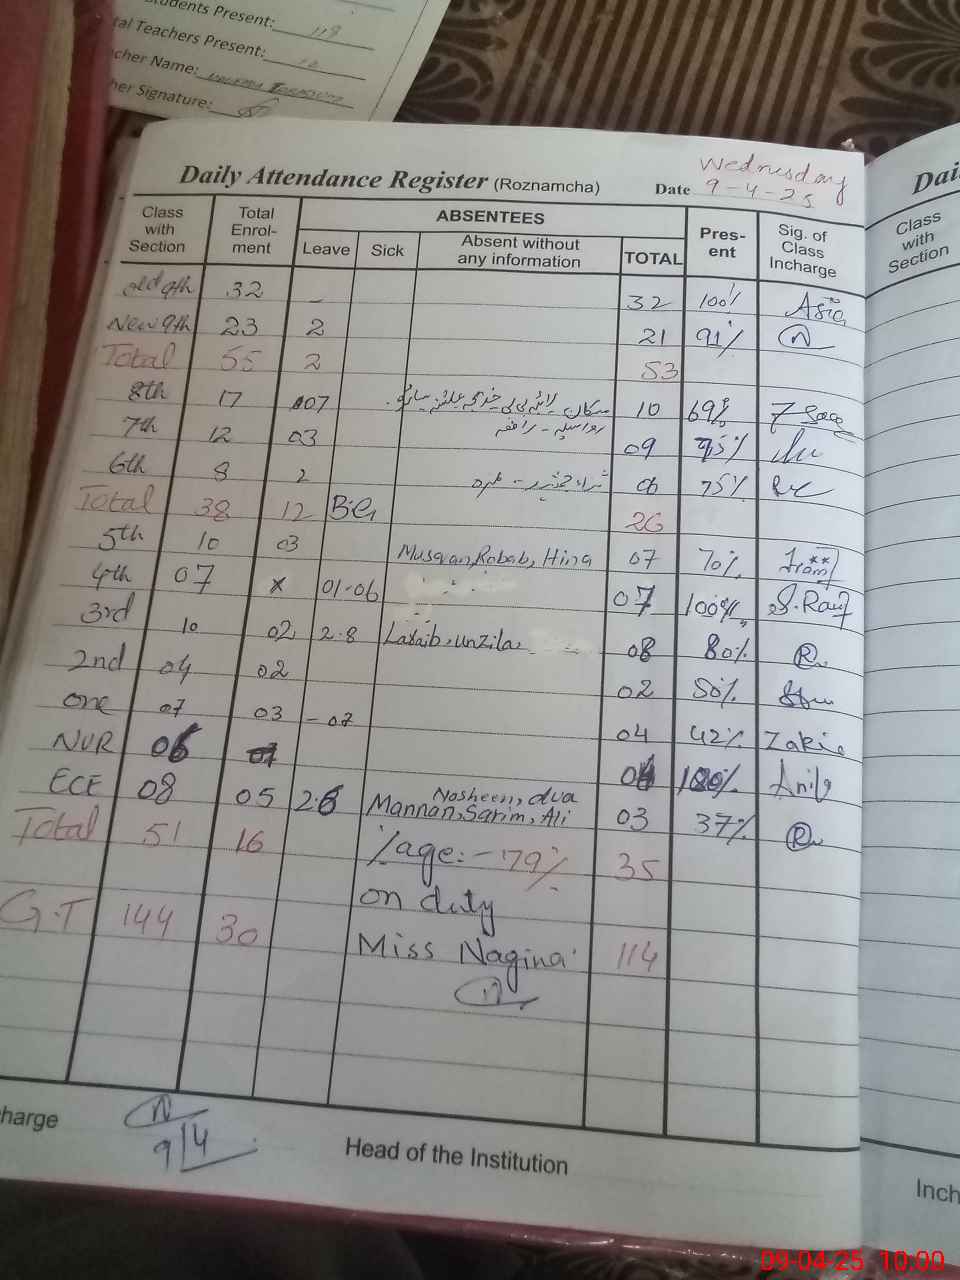 Students Present: 118
tal Teachers Present: 10
cher Name:
her Signature:
Daily Attendance Register (Roznamcha)
Date Wednesday 9-4-25
Class with Section Total Enrol-ment ABSENTEES Leave Sick Absent without any information TOTAL Pres-ent Sig. of Class Incharge
old 9th 32 - 32 100% Asia
New 9th 23 2 21 91%
Total 55 2 53
8th 17 07 10 69%
7th 12 03 09 75%
6th 8 2 06 75%
Total 38 12 26
5th 10 03 Musqan, Robab, Hina 07 70%
4th 07 x 01-06 07 100% S.Rauf
3rd 10 02 2-8 Laraib, unzila 08 80%
2nd 04 02 02 50%
one 07 03 - 07 04 42% Zakia
NUR 06 100% Anila
ECE 08 05 2.6 Nosheen, dua Mannan, Sarim, Ali 03 37%
Total 51 16 %age:- 79% 35
on duty
G.T 144 30 Miss Nagina 114
charge
9/4
Head of the Institution
Dai
Class with Section
Inch
09-04-25 10:00